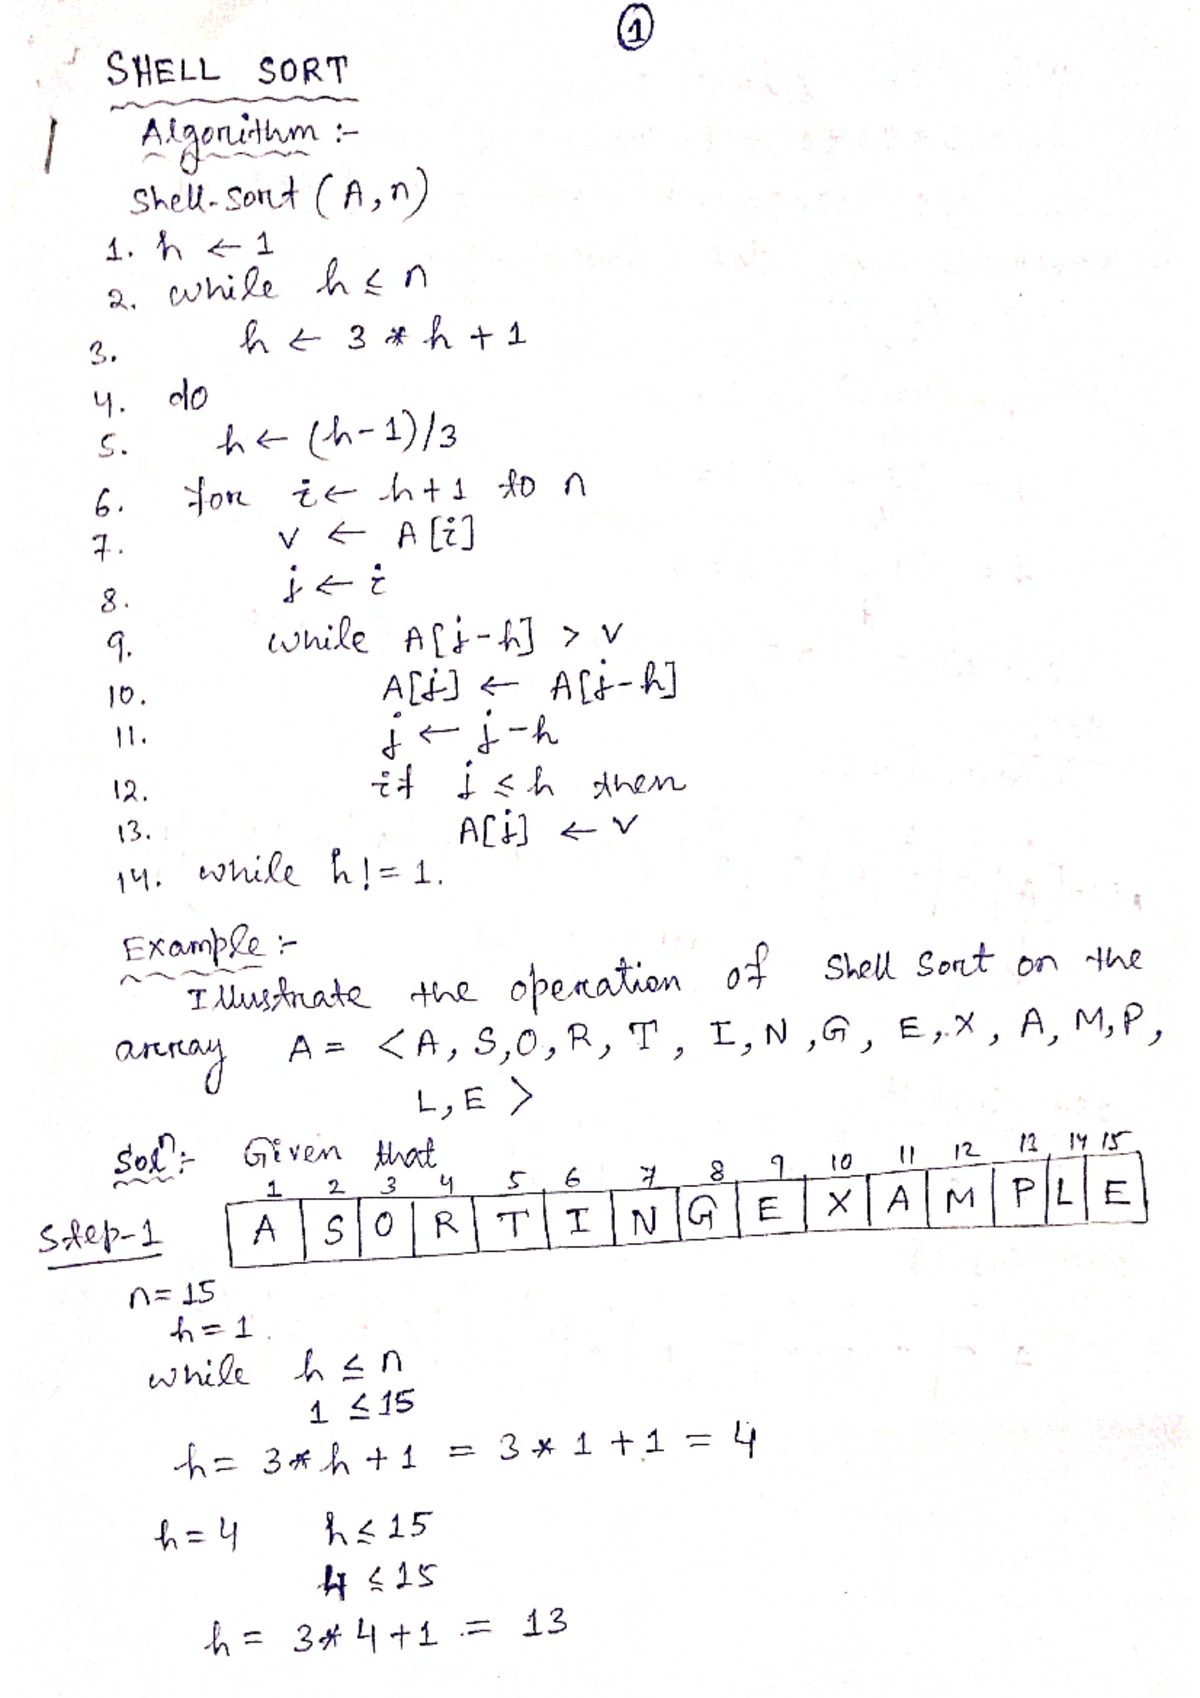 1
SHELL SORT
Algorithm :-
Shell-Sort (A,n)
1. h ← 1
2. while h ≤ n
3. h ← 3 * h + 1
4. do
5. h ← (h-1)/3
6. for i ← h+1 to n
7. v ← A[i]
8. j ← i
9. while A[j-h] > v
10. A[j] ← A[j-h]
11. j ← j-h
12. if j ≤ h then
13. A[j] ← v
14. while h != 1.
Example :-
Illustrate the operation of Shell Sort on the
array A = <A, S, O, R, T, I, N, G, E, X, A, M, P,
L, E >
Solⁿ:- Given that
1 2 3 4 5 6 7 8 9 10 11 12 13 14 15
Step-1 A S O R T I N G E X A M P L E
n = 15
h = 1.
while h ≤ n
1 ≤ 15
h = 3 * h + 1 = 3 * 1 + 1 = 4
h = 4 h ≤ 15
4 ≤ 15
h = 3 * 4 + 1 = 13